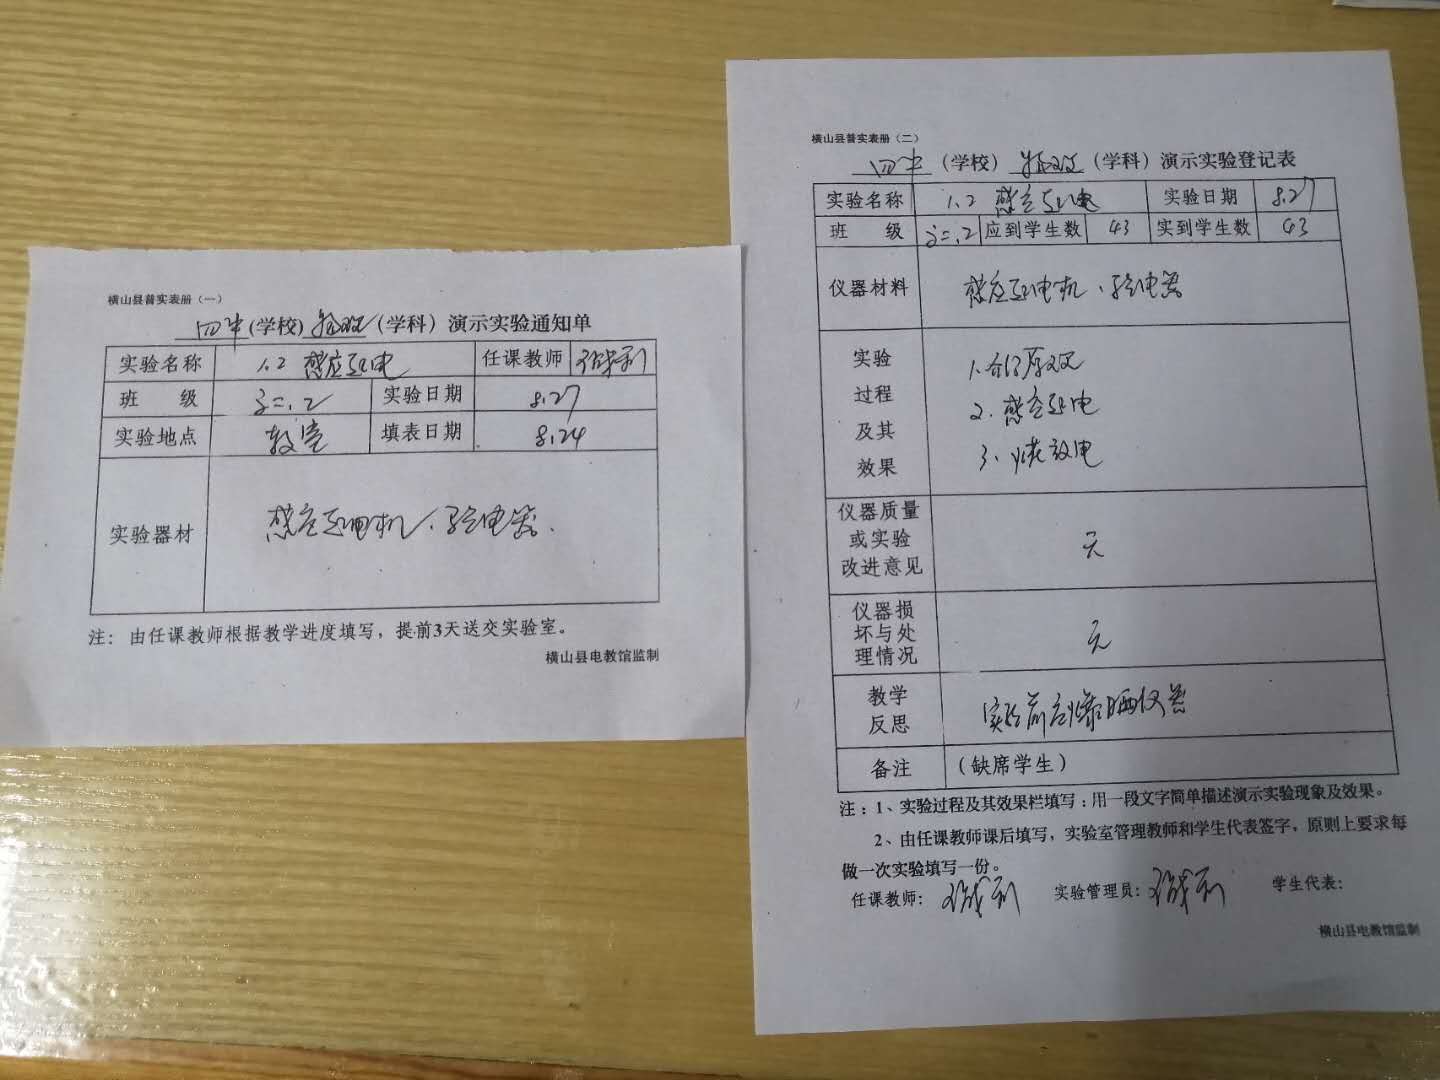 横山县普实表册（一）
四中(学校) 物理(学科) 演示实验通知单
实验名称 1.2 感应起电 任课教师
班 级 高二.2 实验日期 8.27
实验地点 教室 填表日期 8.24
实验器材 感应起电机、验电器.
注：由任课教师根据教学进度填写，提前3天送交实验室。
横山县电教馆监制
横山县普实表册（二）
四中(学校) 物理(学科) 演示实验登记表
实验名称 1.2 感应起电 实验日期 8.27
班 级 高二.2 应到学生数 43 实到学生数 43
仪器材料 感应起电机、验电器
实验
过程
及其
效果
1.介绍原理
2.感应起电
3.火花放电
仪器质量
或实验
改进意见
无
仪器损
坏与处
理情况
无
教学
反思
实验前应晒仪器
备注 (缺席学生)
注：1、实验过程及其效果栏填写：用一段文字简单描述演示实验现象及效果。
2、由任课教师课后填写，实验室管理教师和学生代表签字，原则上要求每
做一次实验填写一份。
任课教师: 实验管理员: 学生代表:
横山县电教馆监制